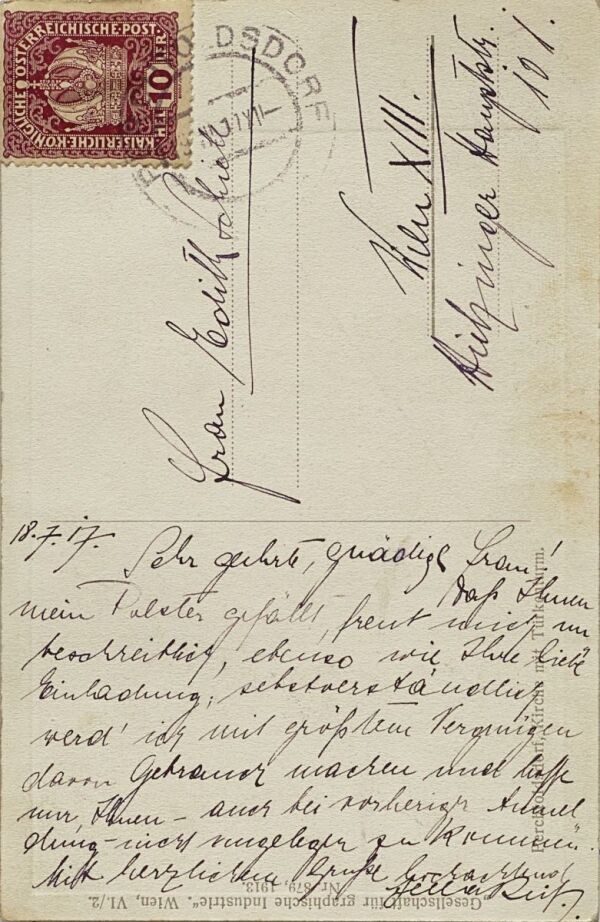 KAISERLICHE KÖNIGLICHE ÖSTERREICHISCHE POST
HELLER 10 HELLER
DSDORF
Frau Edith Schiele
Wien XIII.
Hietzinger Hauptstr.
101.
18.7.17.
Sehr geehrte, gnädige Frau!
daß Ihnen
mein Polster gefällt, freut mich un
beschreiblich, ebenso wie Ihre liebe
Einladung; selbstverständlich
werd' ich mit größtem Vergnügen
davon Gebrauch machen und hoffe
nur, Ihnen – auch bei vorheriger Anmel
dung – nicht ungelegen zu kommen.
Mit herzlichem Gruße hochachtend
Perchtoldsdorf, Kirche mit Türkenturm.
Nr. 879, 1913.
"Gesellschaft für graphische Industrie". Wien, VI./2.